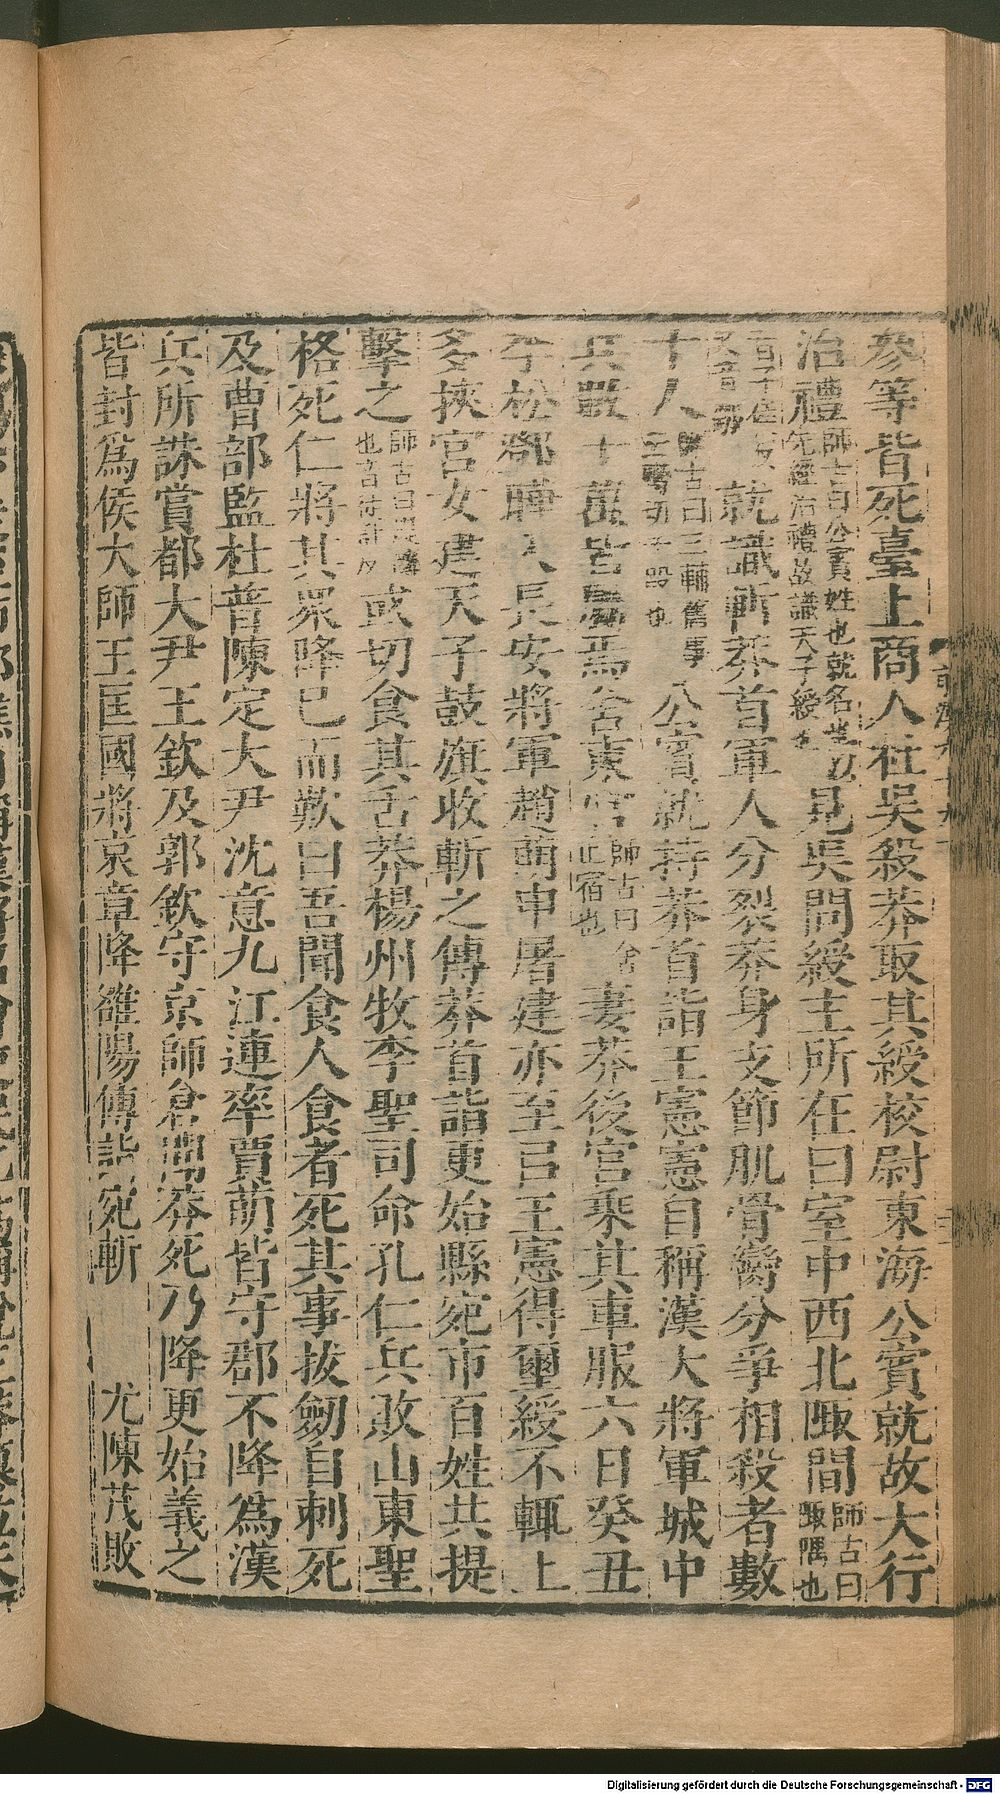 參等皆死臺上商人杜吳殺莽取其綬校尉東海公賓就故大行
治禮師古曰公賓姓也就名也以先經治禮故識天子綬也見吳問綬主所在曰室中西北陬間師古曰陬隅也
就識斬莽首軍人分裂莽身支節肌骨臠分爭相殺者數
十人師古曰三輔舊事公賓就持莽首詣王憲憲自稱漢大將軍城中
兵數十萬皆屬焉舍東宮師古曰舍止宿也妻莽後宮乘其車服六日癸丑
李松鄧曄入長安將軍趙萌申屠建亦至曰王憲得璽綬不輒上
多挾宮女建天子鼓旗收斬之傳莽首詣更始縣宛市百姓共提
擊之師古曰提擲也音徒計反或切食其舌莽楊州牧李聖司命孔仁兵敗山東聖
格死仁將其眾降已而歎曰吾聞食人食者死其事拔劒自刺死
及曹部監杜普陳定大尹沈意九江連率賈萌皆守郡不降爲漢
兵所誅賞都大尹王欽及郭欽守京師倉聞莽死乃降更始義之
皆封爲侯大師王匡國將哀章降雒陽傳詣宛斬 尤陳茂敗
Digitalisierung gefördert durch die Deutsche Forschungsgemeinschaft - DFG